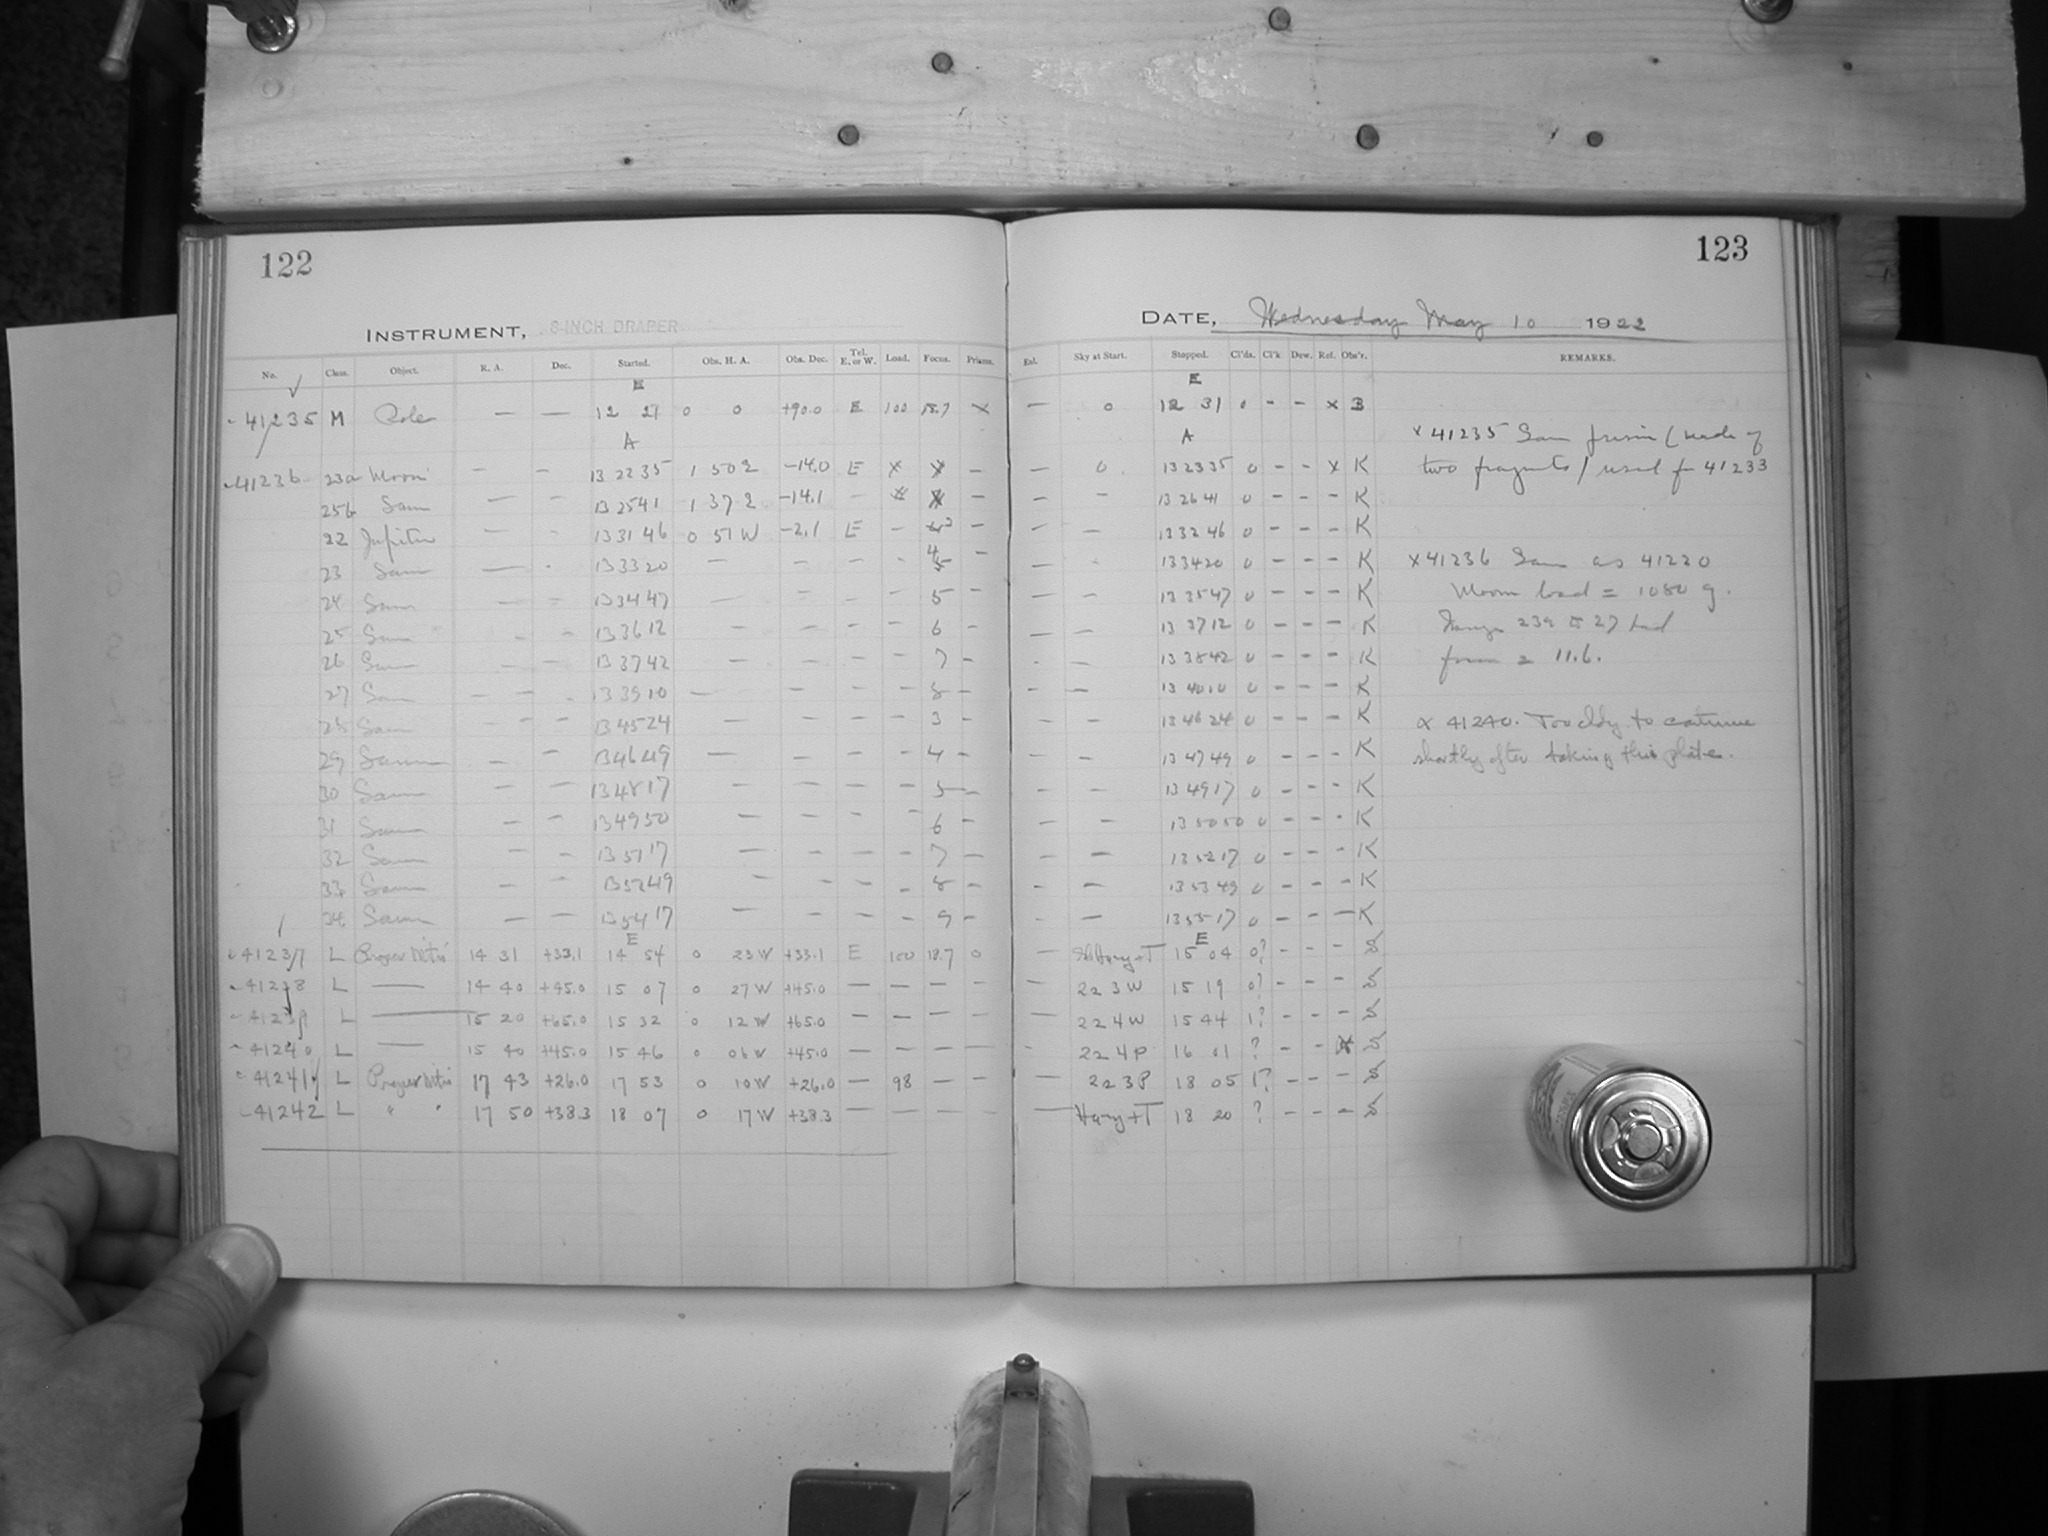 122
INSTRUMENT, 8-INCH DRAPER
No. Class. Object. R. A. Dec. Started. Obs. H. A. Obs. Dec. Tel. E. or W. Load. Focus. Prisms.
E
41235 M Pole — — 12 21 0 0 +90.0 E 100 18.7 x
A
41236 23a Moon — — 13 22 35 1 50 2 -14.0 E x x —
25b Same — — 13 25 41 1 37 2 -14.1 — x x —
22 Jupiter — — 13 31 46 0 51 W -2.1 E — —
23 Same — - 13 33 20 — — — — —
24 Same — — 13 34 47 — — — — 5 —
25 Same - — 13 36 12 — — — — 6 —
26 Same - — 13 37 42 — — — — 7 —
27 Same — — 13 39 10 — — — — 8 —
28 Same — — 13 45 24 — — — — 3 —
29 Same — — 13 46 49 — — — — 4 —
30 Same — — 13 48 17 — — — — 5 —
31 Same — — 13 49 50 — — — — 6 —
32 Same — — 13 51 17 — — — — 7 —
33 Same — — 13 52 49 — — — — 8 —
34 Same — — 13 54 17 — — — — 9 —
E
41237 L Proper Motion 14 31 +33.1 14 54 0 23 W +33.1 E 100 18.7 0
41238 L — 14 40 +45.0 15 07 0 27 W +45.0 — — — —
41239 L — 15 20 +65.0 15 32 0 12 W +65.0 — — — —
41240 L — 15 40 +45.0 15 46 0 06 W +45.0 — — — —
41241 L Proper Motion 17 43 +26.0 17 53 0 10 W +26.0 — 98 — —
41242 L " " 17 50 +38.3 18 07 0 17 W +38.3 — — — —
123
DATE, Wednesday May 10 1922
Exl. Sky at Start. Stopped. Cl'ds. Cl'k Dew. Ref. Obs'r. REMARKS.
E
— 0 12 31 0 - - x B
A
— 0 13 23 35 0 - - x K
— - 13 26 41 0 - - - K
— — 13 32 46 0 - - - K
— - 13 34 20 0 - - - K
— — 13 35 47 0 - - - K
— — 13 37 12 0 - - - K
- — 13 38 42 0 - - - K
- — 13 40 10 0 - - - K
- — 13 46 24 0 - - - K
- — 13 47 49 0 - - - K
- — 13 49 17 0 - - - K
- — 13 50 50 0 - - - K
— — 13 52 17 0 - - - K
— — 13 53 49 0 - - - K
— — 13 55 17 0 - - - K
E
— Hazy+T 15 04 0? - - - S
— 223W 15 19 0? - - - S
— 224W 15 44 1? - - - S
- 224P 16 01 ? - - x S
— 223P 18 05 1? - - - S
— Hazy+T 18 20 ? - - - S
x 41235 Same prism (made of
two fragments) used for 41233
x 41236 Same as 41220
Moon load = 1080 g.
to 27 had
11.6.
x 41240. Too cldy to continue
shortly after taking this plate.